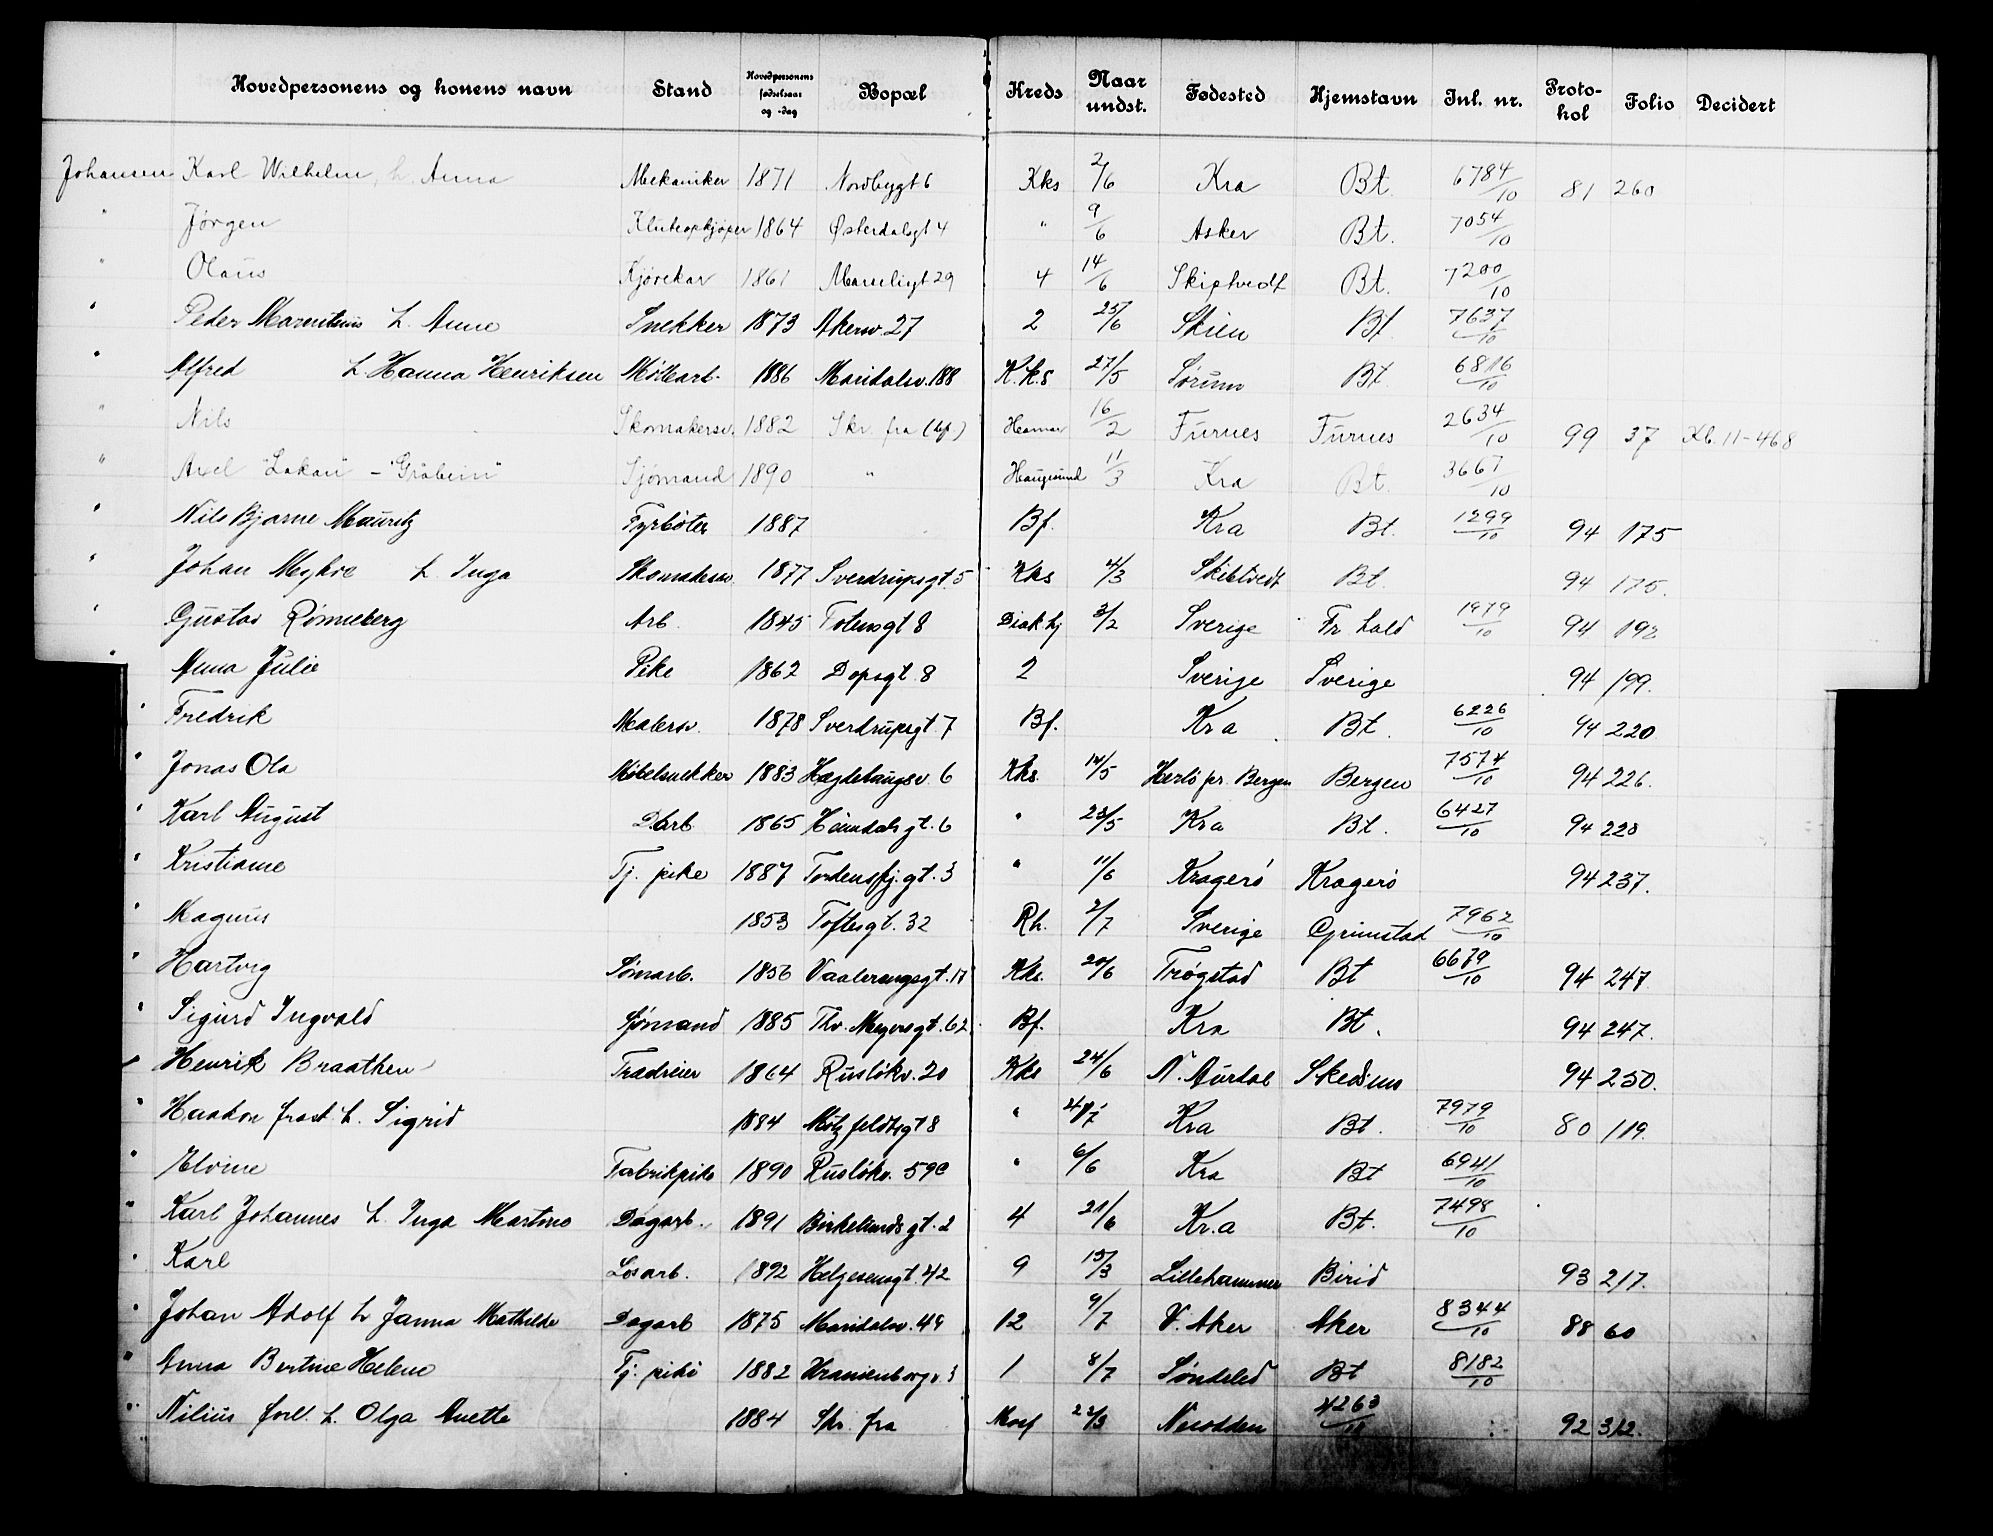 Hovedpersonens og konens navn Stand Hovedpersonens fødselsaar og -dag Bopæl Kreds Naar undst. Fødested Hjemstavn Inl. nr. Protokol Folio Decidert
Johansen Karl Wilhelm, h. Anna Mekaniker 1871 Nordbygt 6 Kks 2/6 Kra Bt. 6784/10 81 260
" Jørgen Kluteopkjøper 1864 Østerdalsgt 4 " 9/6 Asker Bt. 7054/10
" Olaus Kjørekar 1861 29 4 14/6 Skiptvedt Bt. 7200/10
" Peder Marentius h. Anne Snekker 1873 Akersv. 27 2 25/6 Skien Bt 7637/10
" Alfred h. Hanna Henriksen Møllearb. 1886 Maridalsv. 188 K.k.s 27/5 Sørum Bt. 6816/10
" Nils Skomakersv. 1882 Skr. fra (bf.) Hamar 16/2 Furnes Furnes 2634/10 99 37 Kb. 11-468
" Axel "Lakan" - "Gråbein" Sjømand 1890 " Haugesund 11/3 Kra Bt. 3667/10
" Nils Bjarne Mauritz Fyrbøter 1887 Bf. Kra Bt. 1299/10 94 175
" Johan Myhre h. Inga Skomakersv. 1877 Sverdrupsgt. 5 Kks 4/3 Skibtvedt Bt. 94 175.
" Gustav Rønneberg Arb. 1845 Totensgt 8 Diakhj 3/2 Sverige Fr hald 1979/10 94 192
" Anna Julie Pike 1862 Dopsgt. 8 2 Sverige Sverige 94 199.
" Fredrik Malersv. 1878 Sverdrupsgt. 7 Bf. Kra Bt. 6226/10 94 220
" Jonas Ola Møbelsnekker 1883 Hægdehaugsv. 6 Kks 14/5 Herlø pr. Bergen Bergen 7574/10 94 226.
" Karl August D.arb. 1865 Heimdalsgt. 6 " 23/5 Kra Bt. 6427/10 94 228
" Kristiane Tj. pike 1887 Tordenskj.gt. 3 " 11/6 Kragerø Kragerø 94 237.
" Magnus 1853 Toftesgt. 32 Rh. 2/7 Sverige Grimstad 7962/10
" Hartvig Sømarb. 1856 Vaalerengsgt. 17 Kks. 20/6 Trøgstad Bt 6679/10 94 247.
" Sigurd Ingvald Sjømand 1885 Thv. Meyersgt. 62 Bf. Kra Bt. 94 247.
" Henrik Braathen Trædreier 1864 Rusløkv. 20 Kks 24/6 N. Aurdal Skedsmo 94 250.
" Haakon frask. h. Sigrid 1884 Motzfeldtsgt 8 " Kra Bt. 7979/10 80 119.
" Elvine Fabrikpike 1890 Rusløkv. 59c " 6/6 Kra Bt 6941/10
" Karl Johannes h. Inga Martine Dagarb. 1891 Birkelundsgt. 2 4 21/6 Kr.a Bt. 7498/10
" Karl Løsarb. 1892 Helgesensgt. 42 9 15/3 Lillehammer Birid 93 217.
" Johan Adolf h Janna Mathilde Dagarb 1875 Maridalsv. 49 12 9/7 V. Aker Aker 8344/10 88 60
" Anna Bertine Helene Tj. pike 1882 Uranienborgv. 3 1 8/7 Søndeled Bt 8182/10
" Nilius forl. h. Olga Anette 1884 Skr. fra Mosj 22/3 Nesodden 4263/10 92 312.